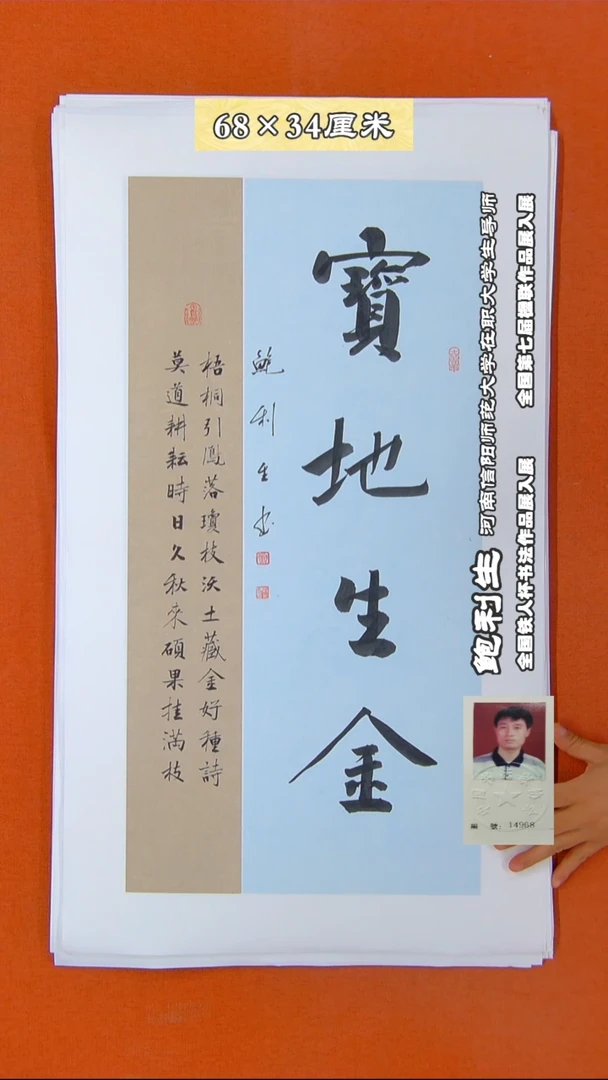 68×34厘米
寶地生金
鲍利生书
梧桐引鳳落瓊枝沃土藏金好種詩
莫道耕耘時日久秋來碩果挂满枝
鲍利生 河南信阳师范大学在职大学生导师
全国铁人杯书法作品展入展 全国第七届楹联作品展入展
號:14968